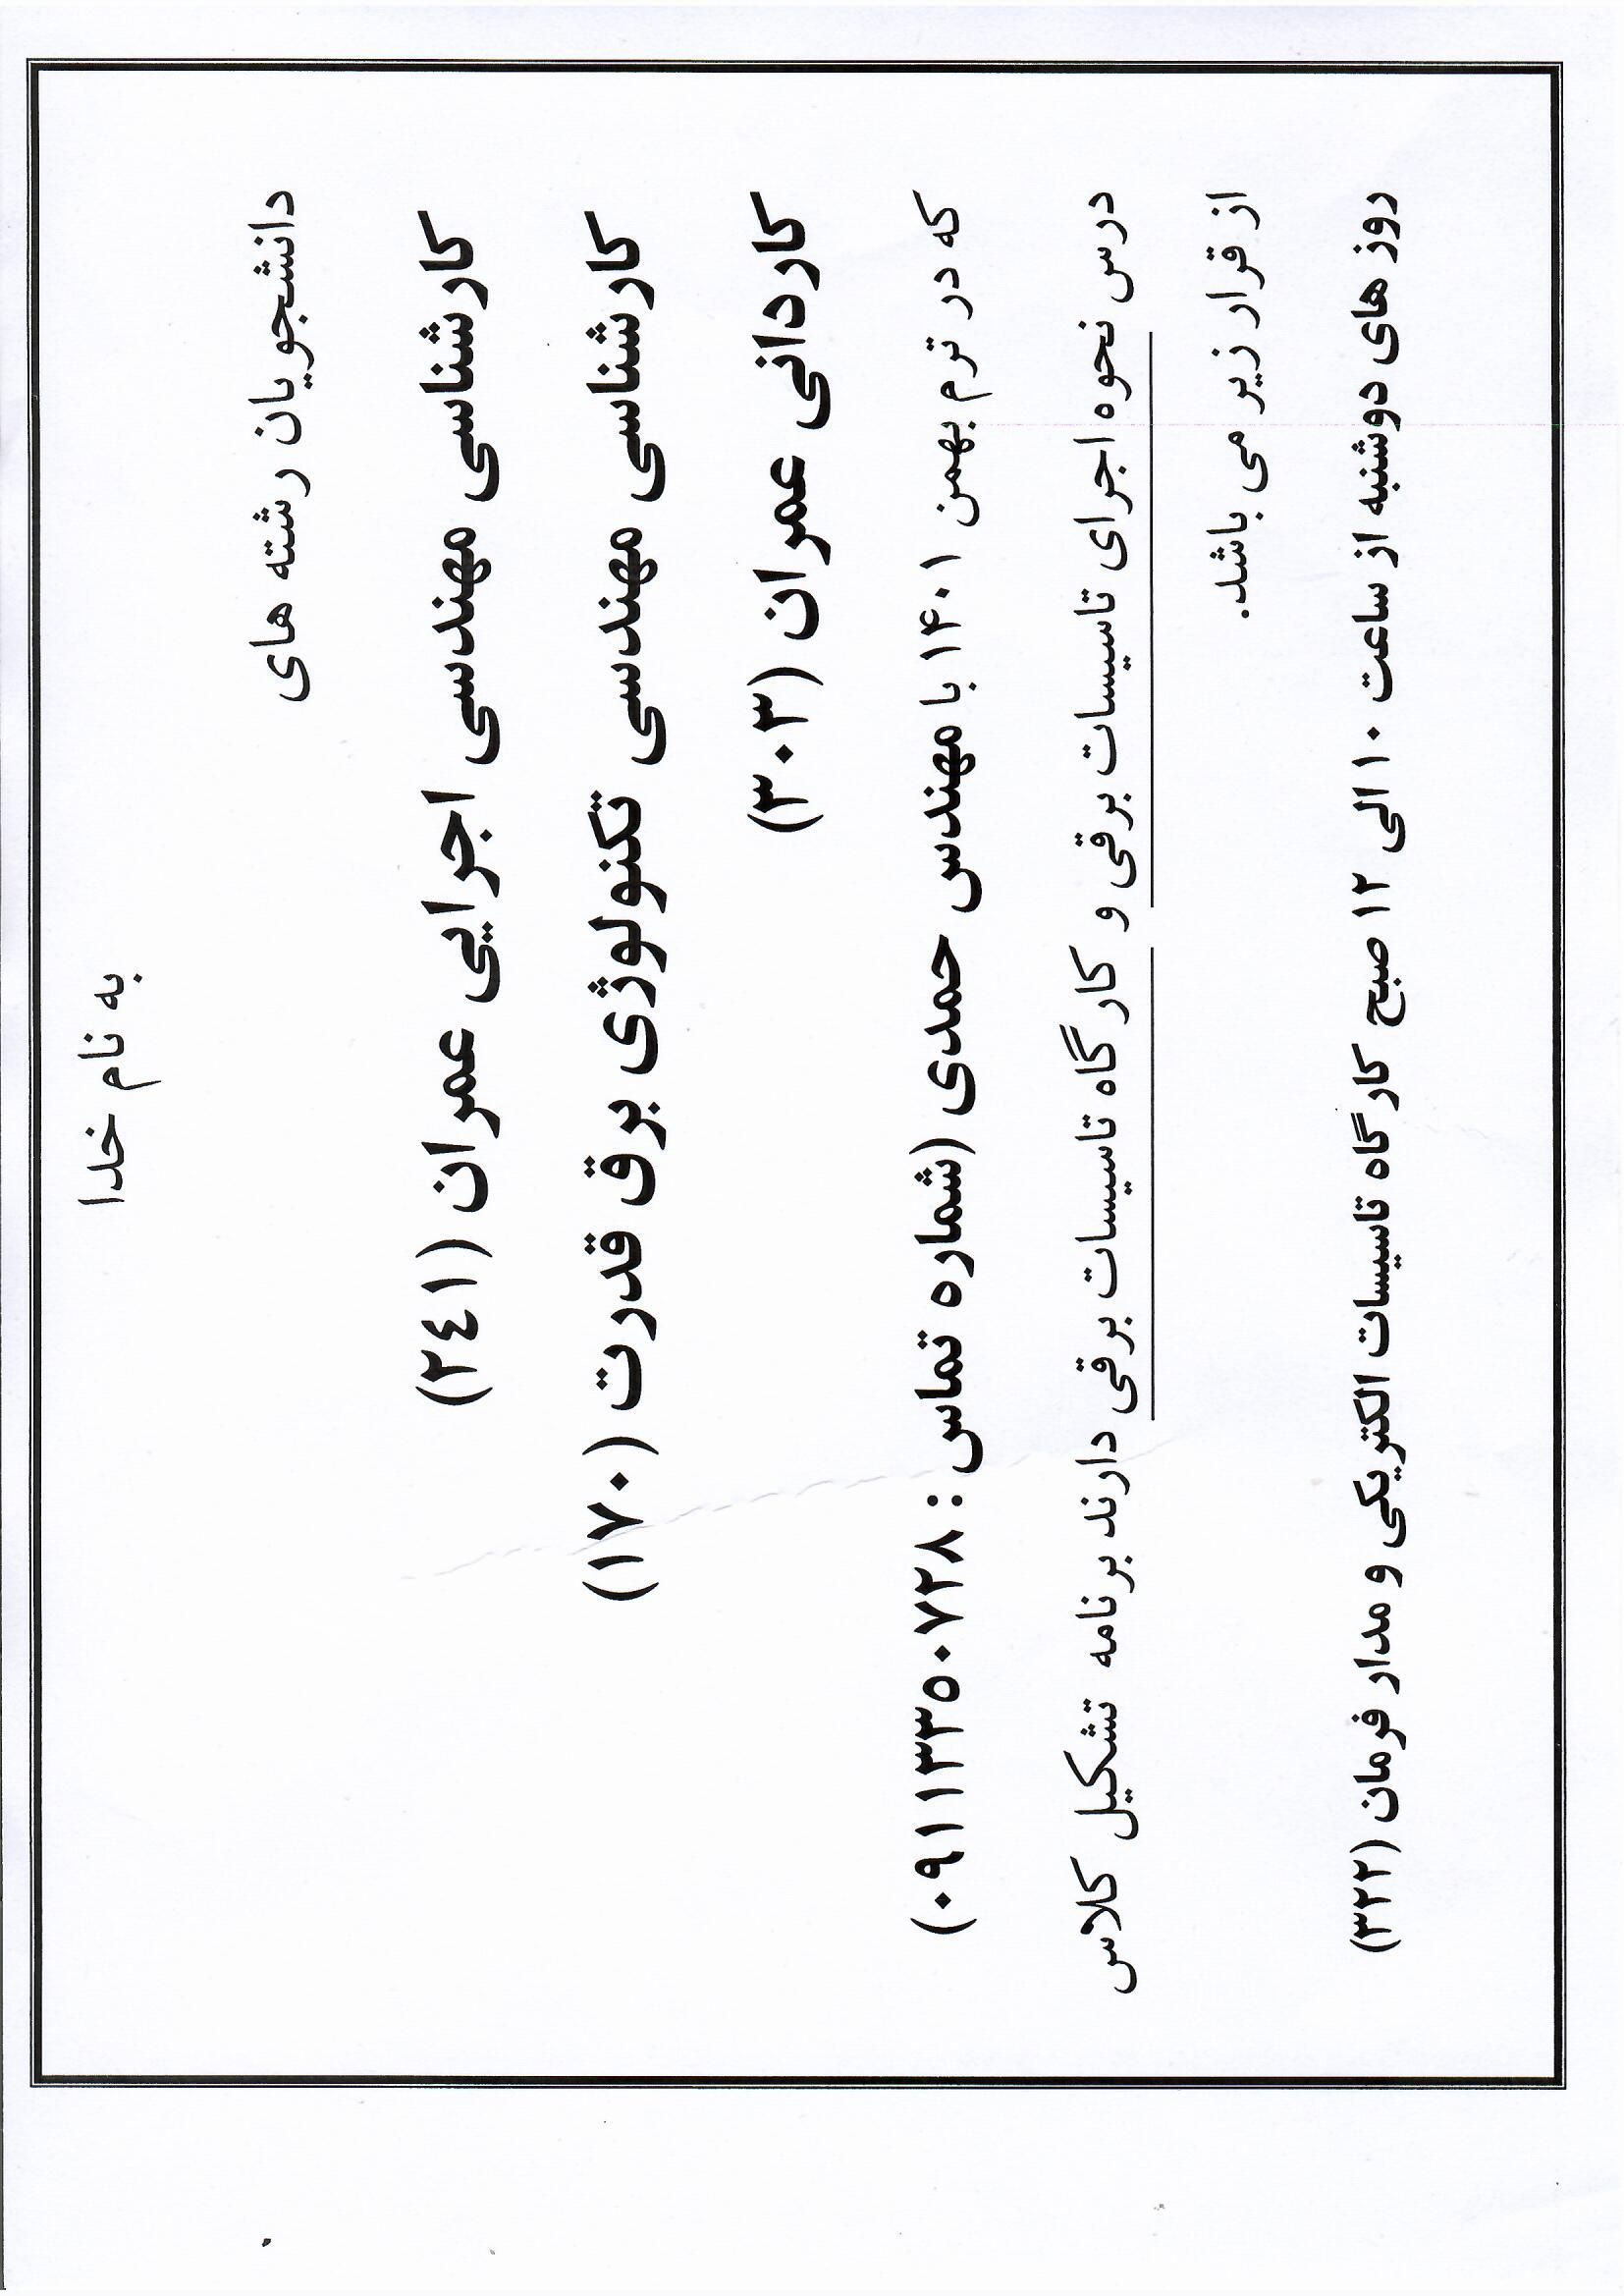 به نام خدا
دانشجویان رشته های
کارشناسی مهندسی اجرایی عمران (۲٤۱)
کارشناسی مهندسی تکنولوژی برق قدرت (۱۷۰)
کاردانی عمران (۳۰۳)
که در ترم بهمن ۱۴۰۱ با مهندس حمدی (شماره تماس : ۰۹۱۱۳۳۵۰۷۲۸)
درس نحوه اجرای تاسیسات برقی و کارگاه تاسیسات برقی دارند برنامه تشکیل کلاس
از قرار زیر می باشد.
روز های دوشنبه از ساعت ۱۰ الی ۱۲ صبح کارگاه تاسیسات الکتریکی و مدار فرمان (۳۲۲)